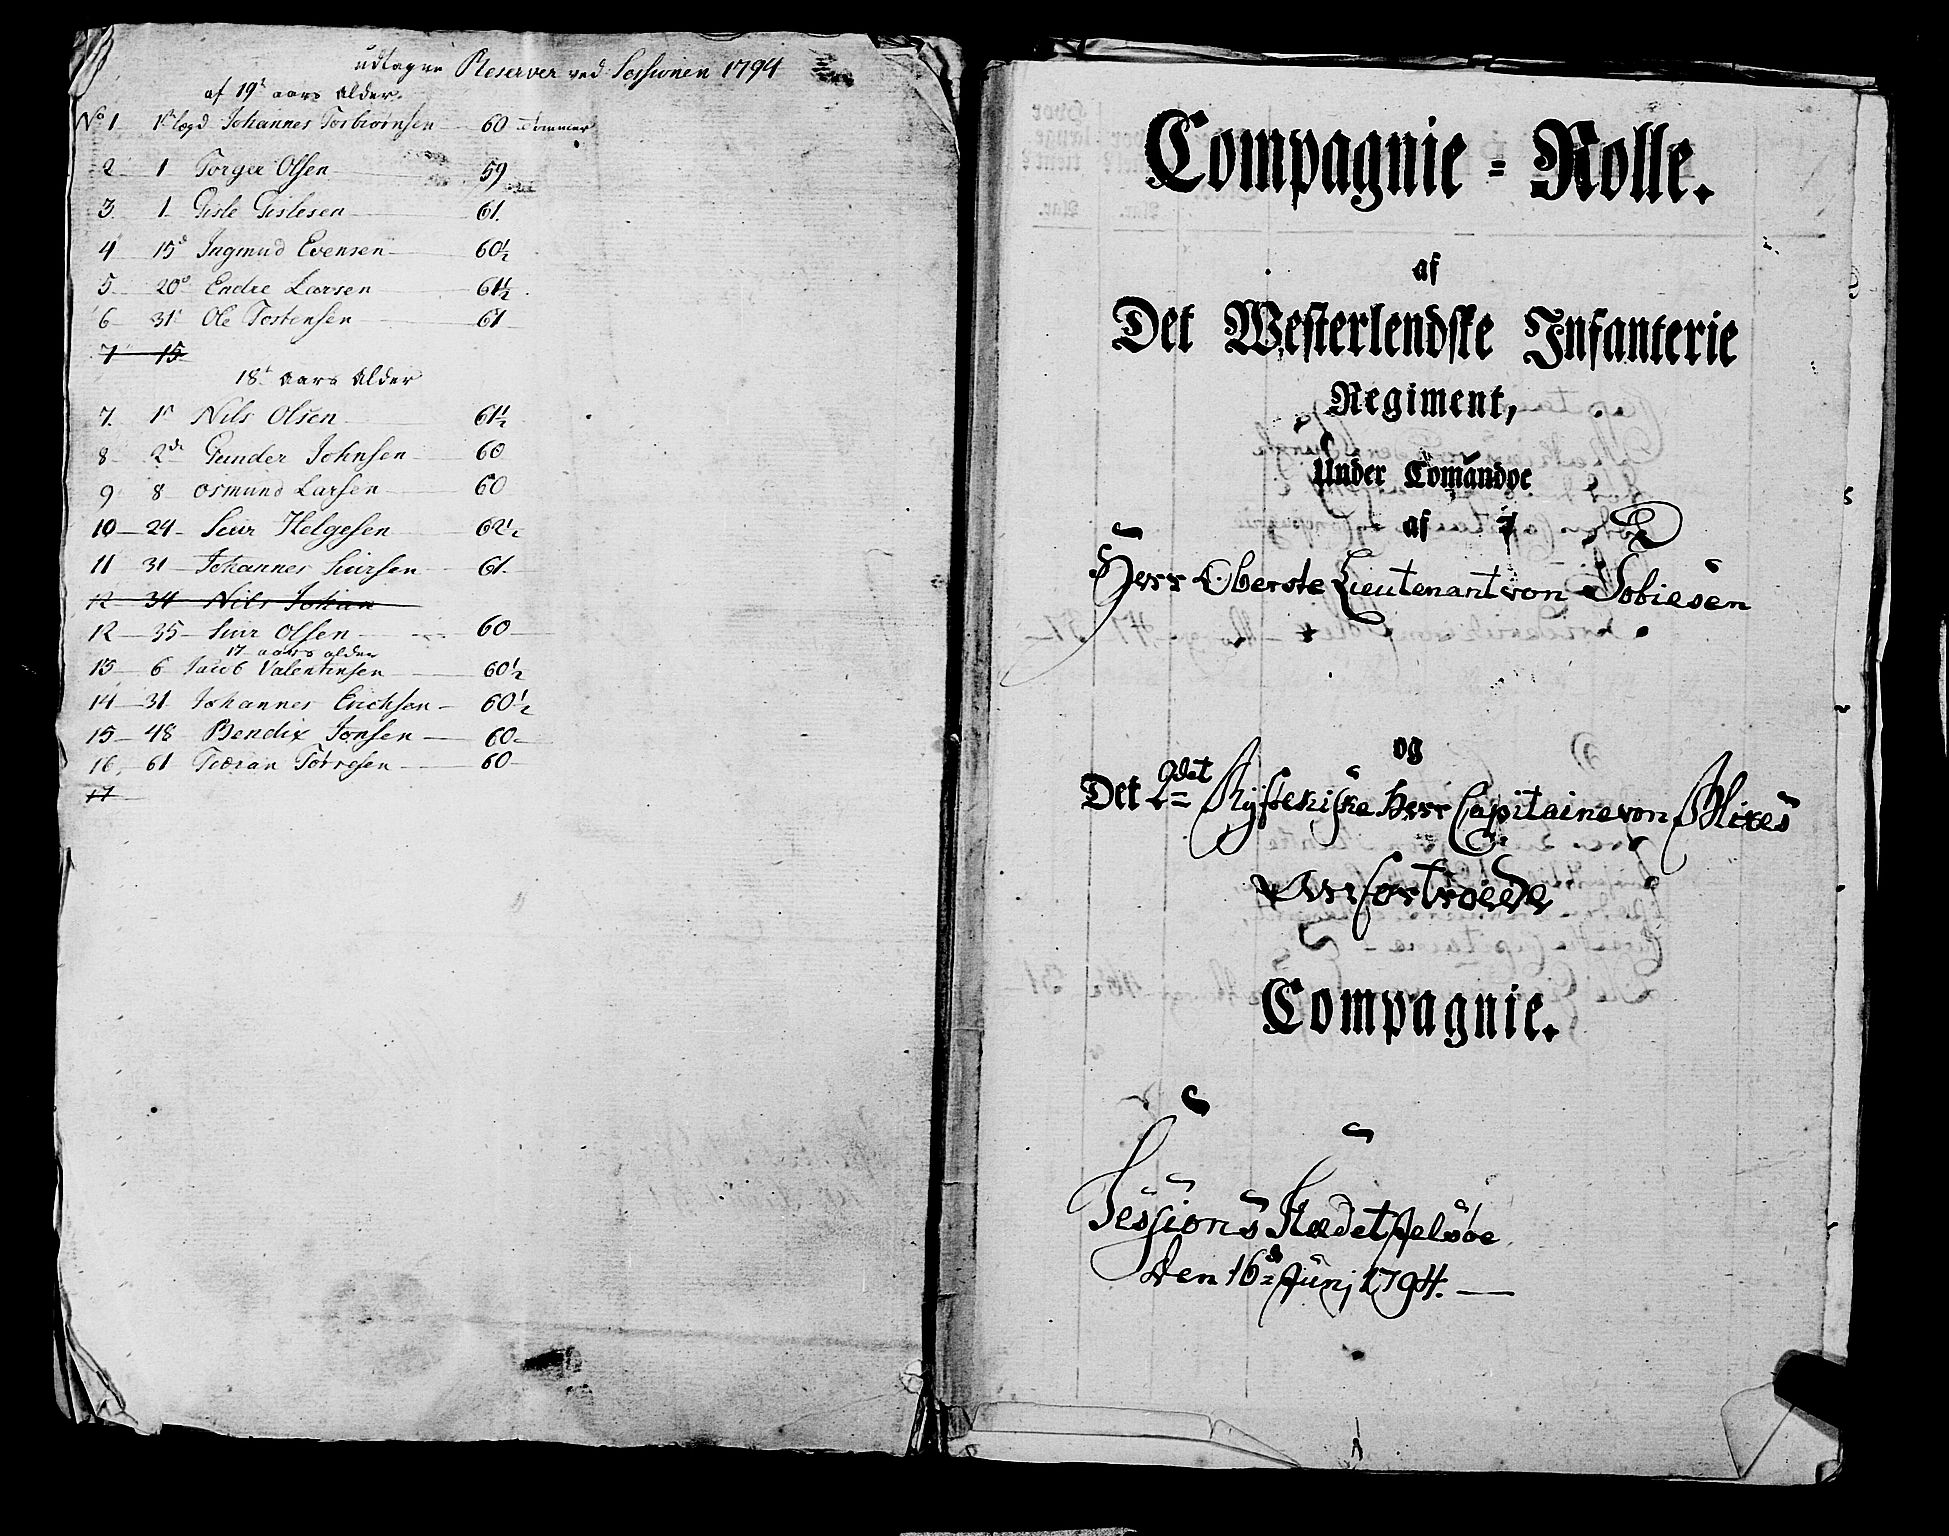 udtagne Reserver ved Sessionen 1794
af 19d aars Alder.
No 1 1st lægd Johannes Torbiørnsen 60 Tommer
2 1 Torger Olsen 59
3. 1 Gisle Gislesen 61.
4 15d Ingmund Evensen 60½
5 20d Endre Larsen 61½
6 31 Ole Tostensen 61
7 15
18d aars Alder
7. 1st Nils Olsen 61½
8 2de Gunder Johnsen 60
9 8 Osmund Larsen 60
10 24 Siur Helgesen 62½
11 31 Johannes Siursen 61.
12 34 Nils Johan
12 35 Siur Olsen 60
17 aars alder
13 6 Jacob Valentinsen 60½
14 31 Johannes Erichsen 60½
15 48 Bendix Jonsen 60
16, 61 Tioran Torresen 60
17
Compagnie = Rolle.
af
Det Westerlendske Infanterie
Regiment,
Under Comandoe
af
Herr Oberste Lieutenant von Tobiesen
og
Det 2det Ryfylkiske Herr Capitaine von
Anfortroede
Compagnie.
Sessions Stædet Jelsøe
Den 16de Junj 1794.